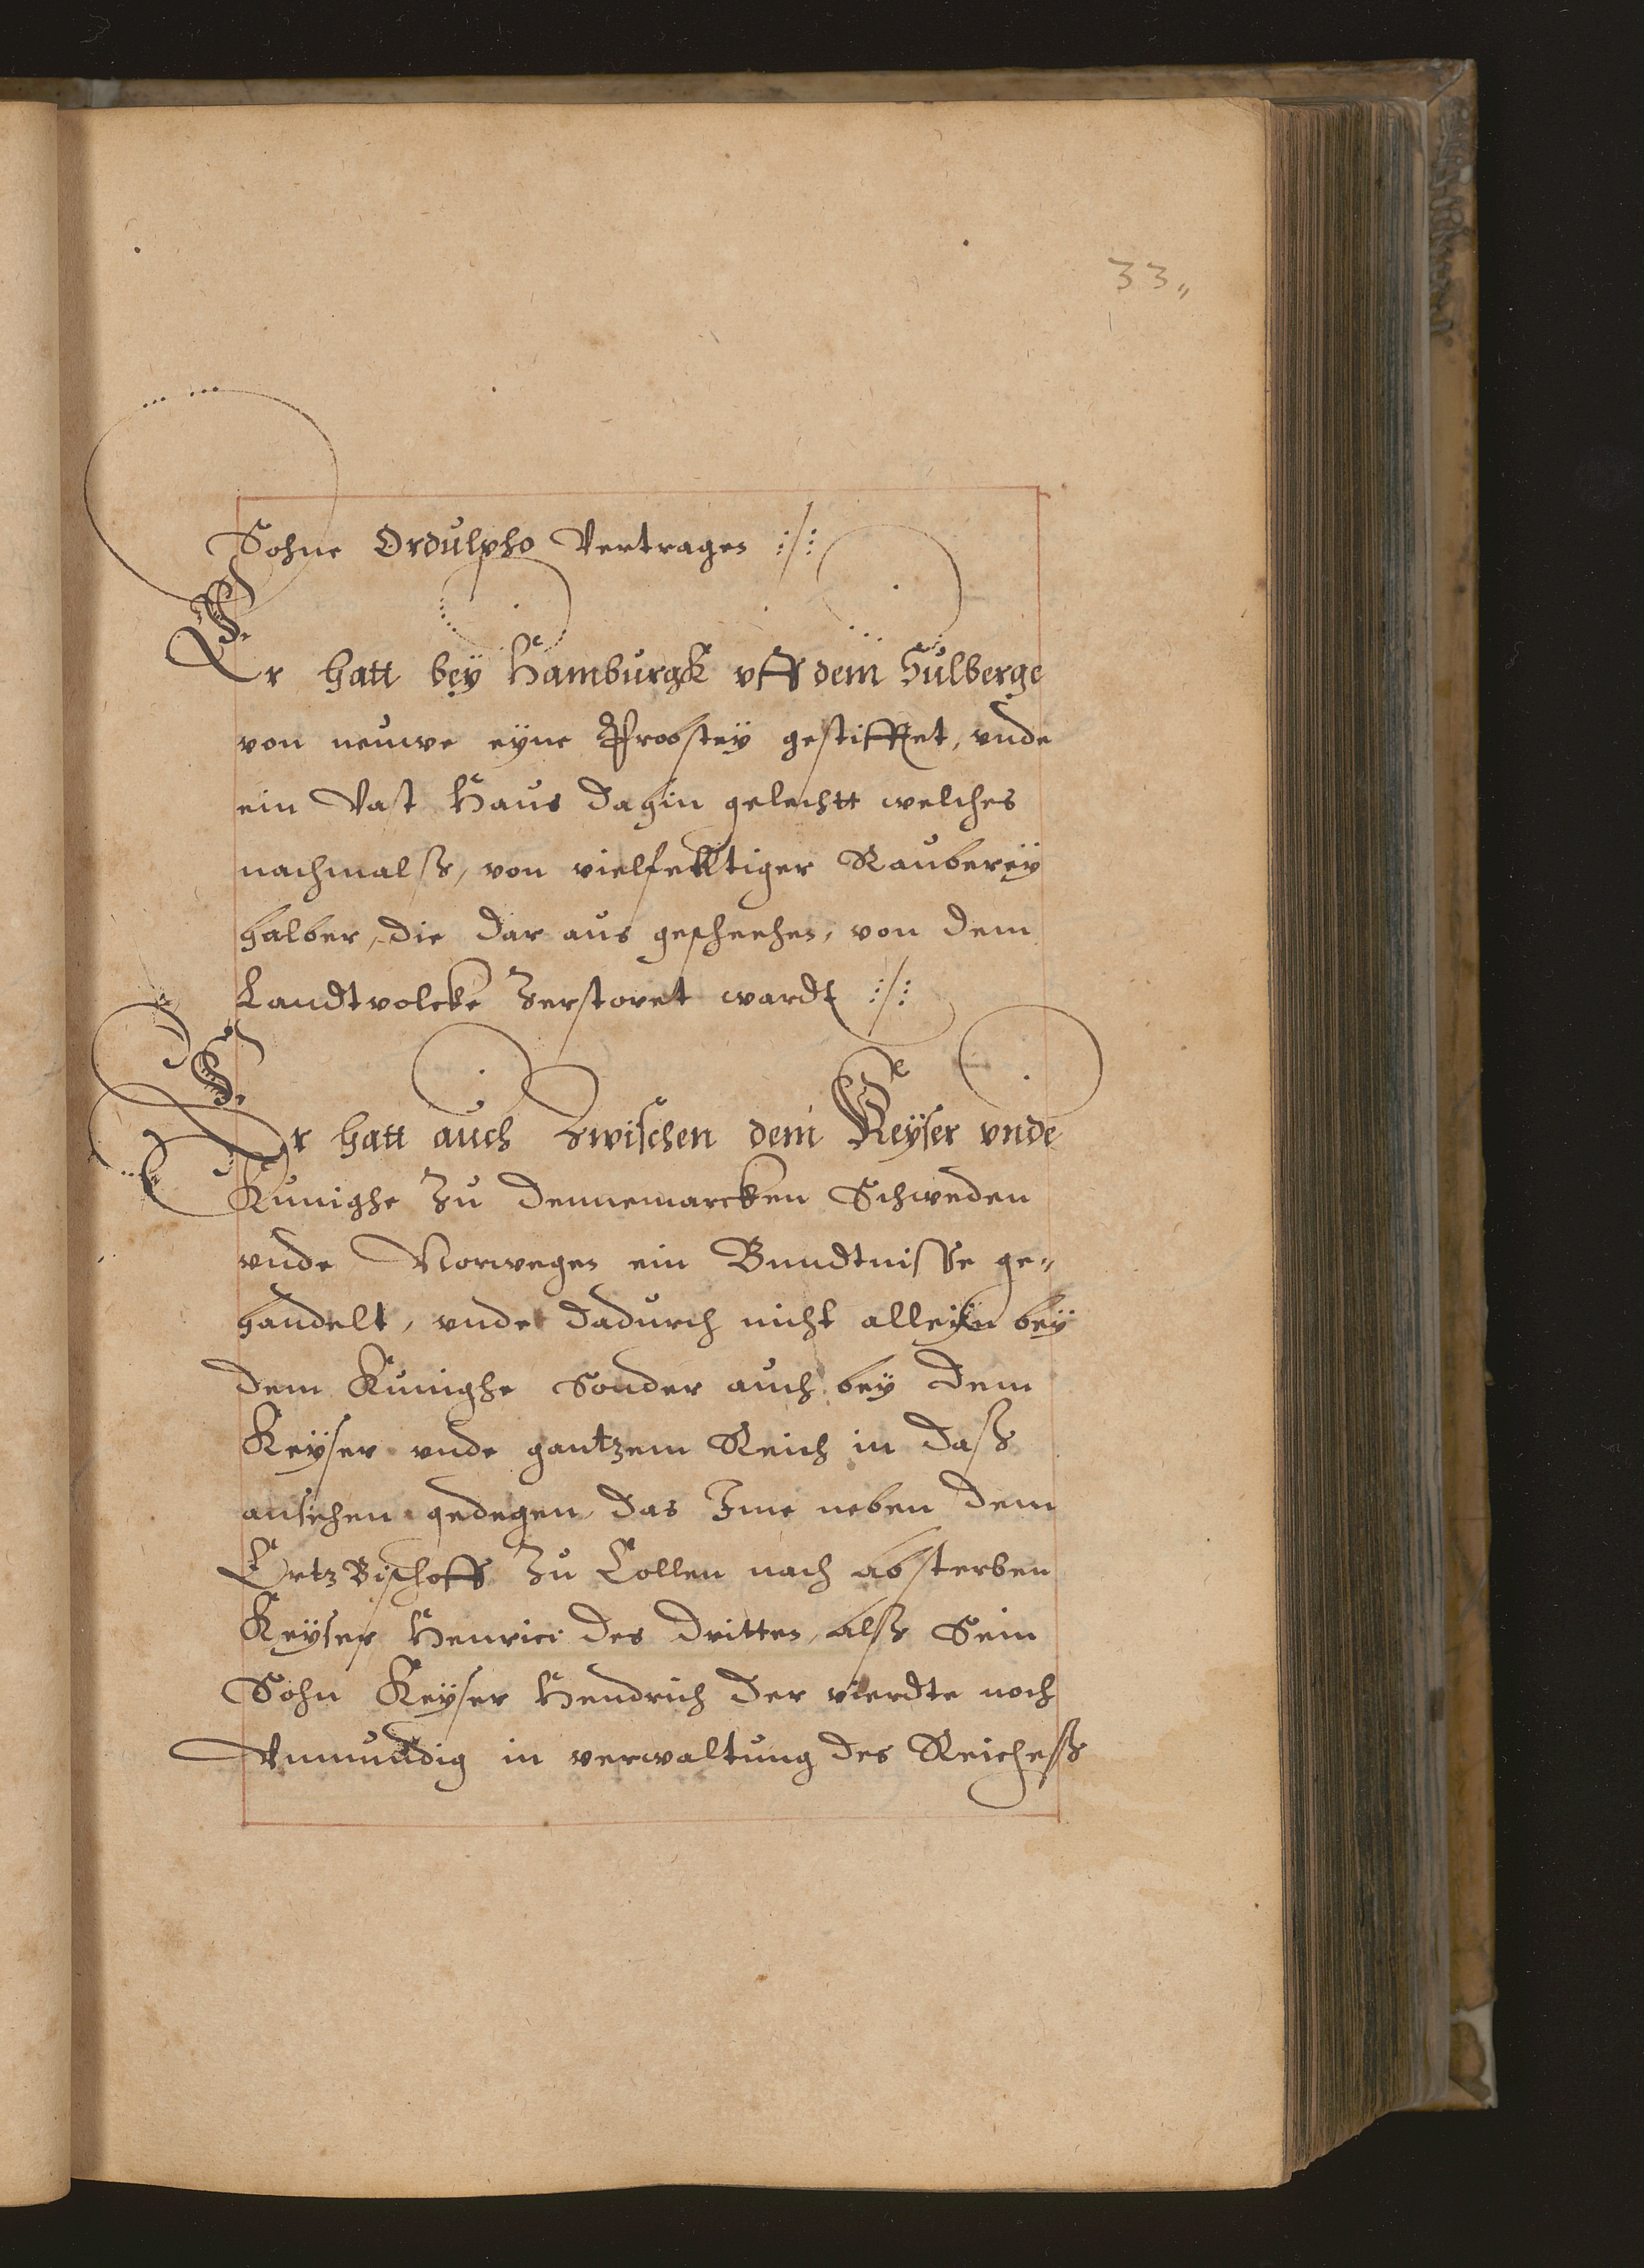 33„
Sohne Ordulpho Vertragen :/:
Er hatt bey Hamburgk vff dem Sulberge
von neuwe eyne Probstey gestifftet, vnde
ein Vast Haus dahin gelechtt welches
nachmalß, von vielfelltiger Rauberey
halber, die dar aus gescheehen, von dem
Landtvolcke Zerstoret wardt :/:
Er hatt auch Zwischen dem Keyser vnde
Kunighe Zu Dennemarcken Schweden
vnde Norwegen ein Bundtnisse ge„
handelt, vnde dadurch nicht alleyn bey
dem Kunighe Sonder auch bey dem
Keyser vnde gantzem Reich in daß
ansehen gedegen, das Ime neben dem
Ertz Bischoff Zu Collen nach absterben
Keyser Henrici des dritten, alß Sein
Sohn Keyser Hendrich der vierdte noch
Vnmundig in verwaltung des Reicheß